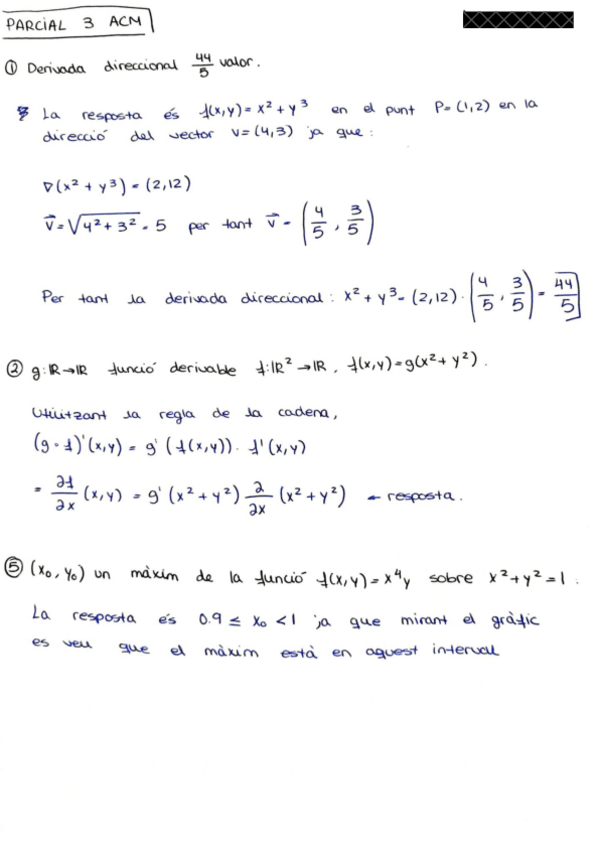 PARCIAL 3 ACM
① Derivada direccional 44/5 valor.
La resposta és f(x,y)=x²+y³ en el punt P=(1,2) en la
direcció del vector v=(4,3) ja que:
∇(x²+y³)=(2,12)
v⃗=√4²+3²=5 per tant v⃗=(4/5, 3/5)
Per tant la derivada direccional: x²+y³=(2,12)·(4/5, 3/5)=44/5
② g:ℝ→ℝ funció derivable f:ℝ²→ℝ, f(x,y)=g(x²+y²).
Utilitzant la regla de la cadena,
(g·f)'(x,y)=g'(f(x,y))·f'(x,y)
=∂f/∂x(x,y)=g'(x²+y²)∂/∂x(x²+y²) ← resposta.
⑤ (x₀,y₀) un màxim de la funció f(x,y)=x⁴y sobre x²+y²=1:
La resposta és 0.9≤x₀<1 ja que mirant el gràfic
es veu que el màxim està en aquest interval